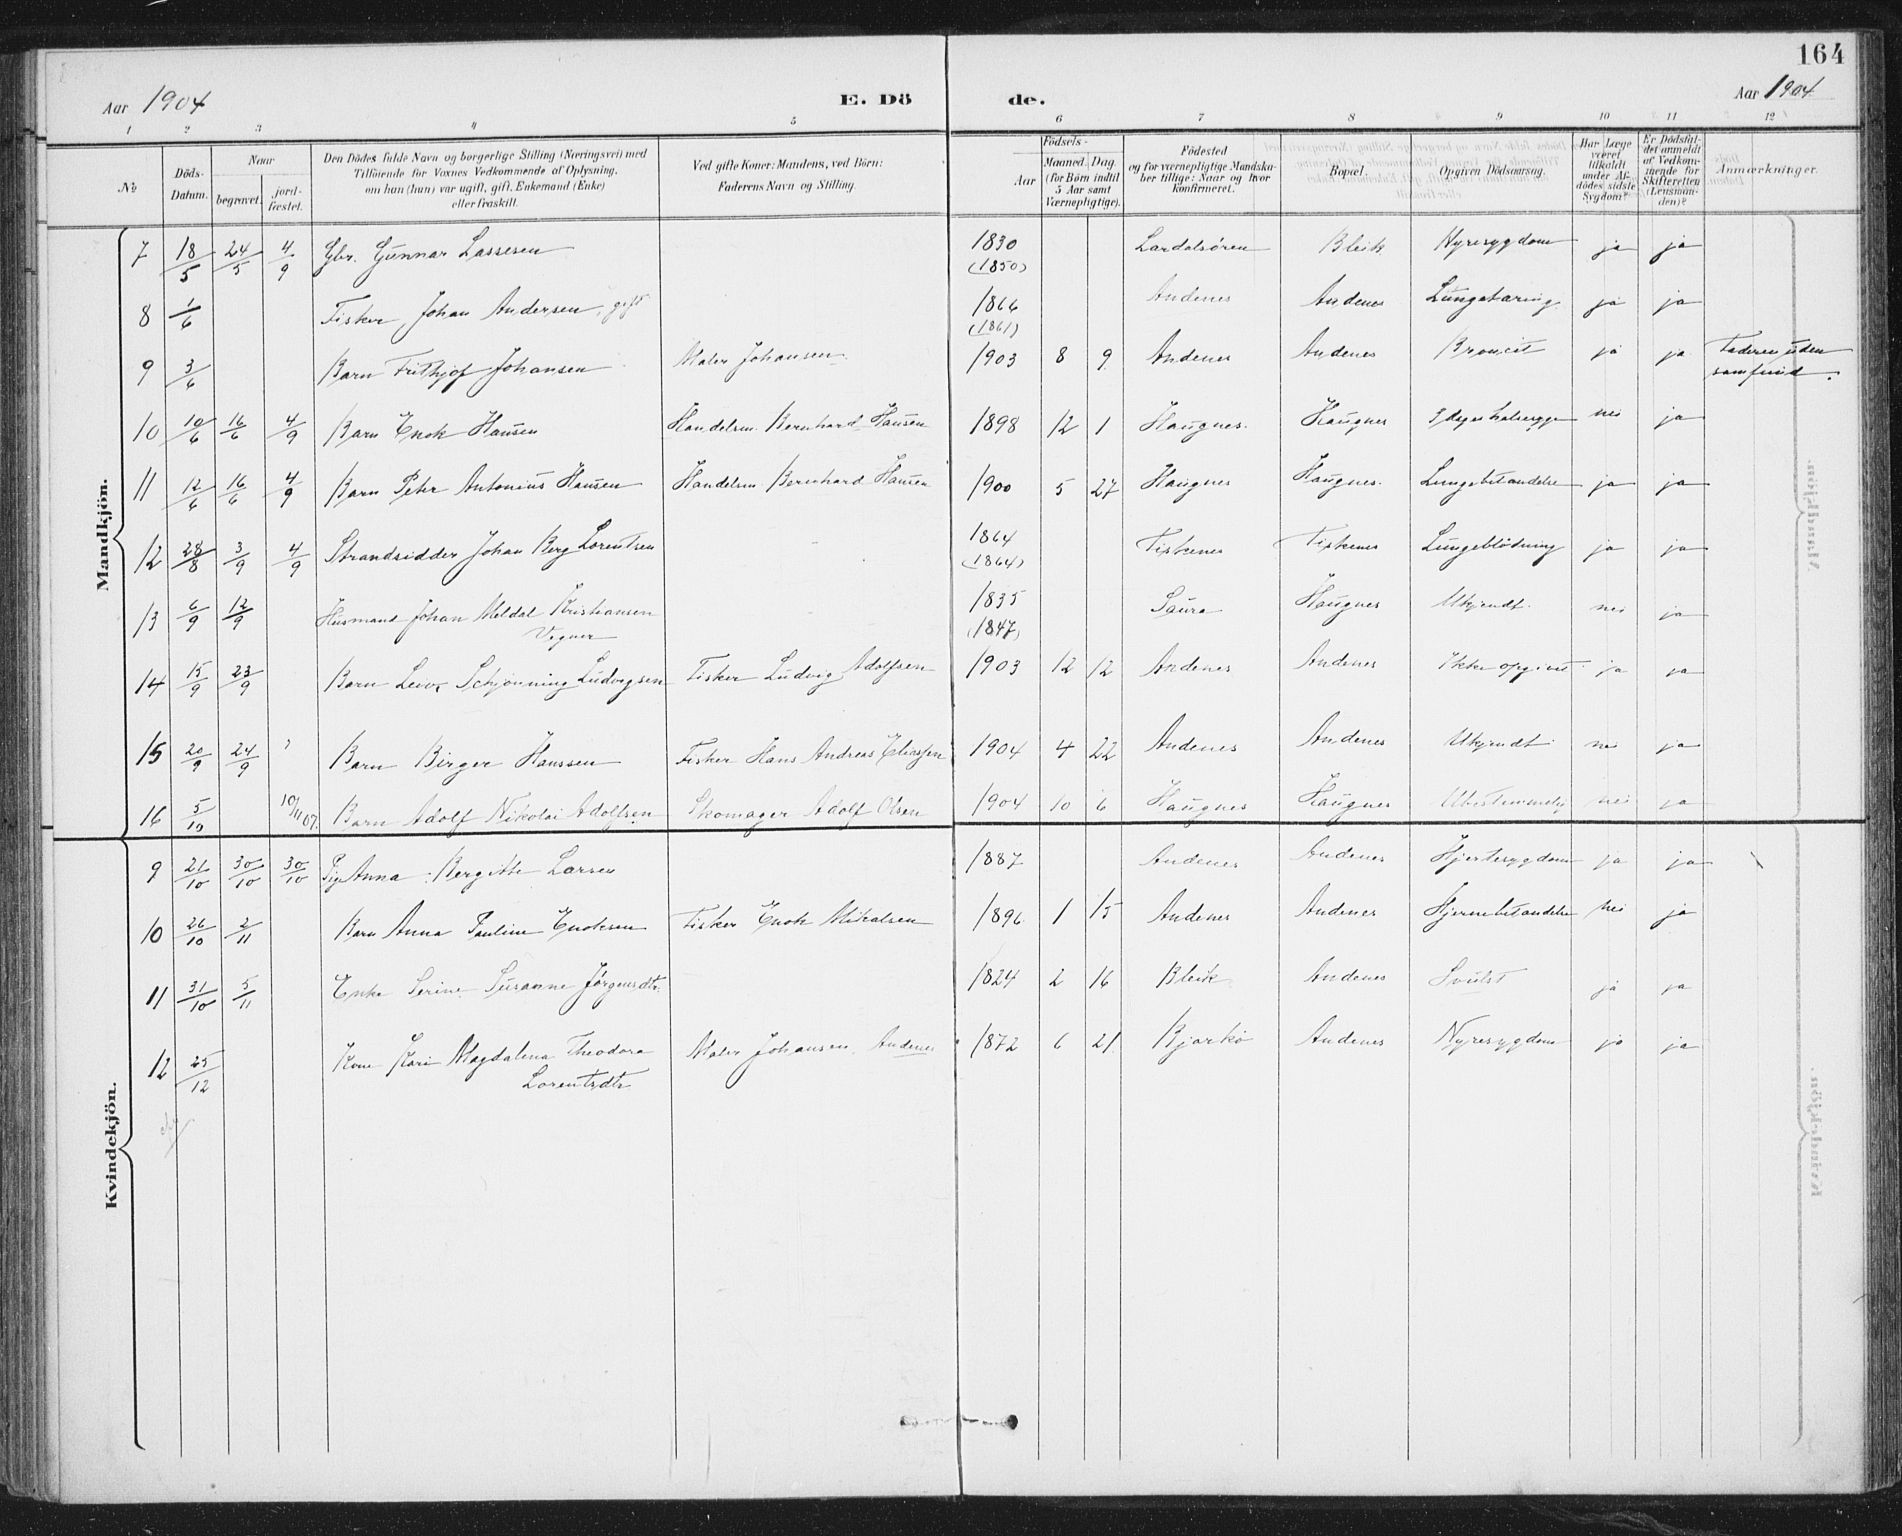 164
Aar 1904 E. Dö de. Aar 1904
1 2 3 4 5 6 7 8 9 10 11 12
No Döds-Datum. Naar begravet. jordfæstet. Den Dödes fulde Navn og borgerlige Stilling (Næringsvei) med Tilföiende for Voxnes Vedkommende af Oplysning, om han (hun) var ugift, gift, Enkemand (Enke) eller fraskilt. Ved gifte Koner: Mandens, ved Börn: Faderens Navn og Stilling. Födsels- Aar Maaned. Dag. (for Börn indtil 5 Aar samt Værnepligtige). Födested og for værnepligtige Mandskaber tillige: Naar og hvor konfirmeret. Bopæl. Opgiven Dödsaarsag. Har Læge været tilkaldt under Afdödes sidste Sygdom? Er Dödsfaldet anmeldt af Vedkommende for Skifteretten (Lensmanden)? Anmærkninger.
Mandkjön.
7 18/5 24/5 4/9 Gbr. Gunnar Lassesen 1830 (1850) Lardalsören Bleik Nyresygdom ja ja
8 1/6 Fisker Johan Andersen, gift 1866 (1861) Andenes Andenes Lungetæring ja ja
9 3/6 Barn Frithjof Johansen Maler Johansen 1903 8 9 Andenes Andenes Broncit ja ja Faderen uden samfund.
10 10/6 16/6 4/9 Barn Enok Hansen Handelsm. Bernhard Hansen 1898 12 1 Haugnes. Haugnes nei ja
11 12/6 16/6 4/9 Barn Peter Antonius Hansen Handelsm. Bernhard Hansen 1900 5 27 Haugnes Haugnes. Lungebetændelse ja ja
12 28/8 3/9 4/9 Strandsidder Johan Berg Lorentsen 1864 (1864) Fiskenes Fiskenes Lungeblödning ja ja
13 6/9 12/9 Husmand Johan Meldal Kristiansen Vegner 1835 (1847) Saura Haugnes Ukjendt. nei ja
14 15/9 23/9 Barn Leiv Schjønning Ludvigsen Fisker Ludvig Adolfsen 1903 12 12 Andenes Andenes Ikke opgivet ja ja
15 20/9 24/9 Barn Birger Hanssen Fisker Hans Andreas Eliassen 1904 4 22 Andenes Andenes Ukjendt nei ja
16 5/10 10/11 07. Barn Adolf Nikolai Adolfsen Skomager Adolf Olsen 1904 10 6 Haugnes Haugnes Ubestemmelig nei ja
Kvindekjön.
9 21/10 30/10 30/10 Pige Anna Bergitte Larsen 1887 Andenes Andenes Hjertesygdom ja ja
10 26/10 2/11 Barn Anna Pauline Enoksen Fisker Enok Mikalsen 1896 1 15 Andenes Andenes Hjernebetændelse nei ja
11 31/10 5/11 Enke Serine Susanne Jørgensdtr. 1824 2 16 Bleik Andenes Svulst ja ja
12 25/12 Kone Kari Magdalena Theodora Lorentsdtr Maler Johansen, Andenes 1872 6 21 Bjarkö Andenes Nyresygdom ja ja